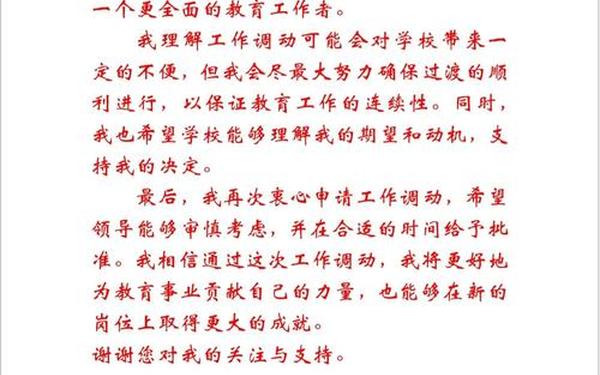 一个更全面的教育工作者。
我理解工作调动可能会对学校带来一
定的不便，但我会尽最大努力确保过渡的顺
利进行，以保证教育工作的连续性。同时，
我也希望学校能够理解我的期望和动机，支
持我的决定。
最后，我再次衷心申请工作调动，希望
领导能够审慎考虑，并在合适的时间给予批
准。我相信通过这次工作调动，我将更好地
为教育事业贡献自己的力量，也能够在新的
岗位上取得更大的成就。
谢谢您对我的关注与支持。